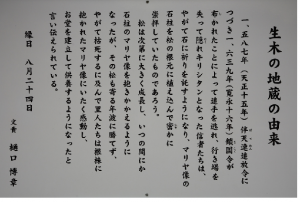 生木の地蔵の由来
一、五八七年（天正十五年）伴天連追放令に
つづき一、六三九年（寛永十六年）鎖国令が
布かれたことによって逃手を迯れ、行き場を
失って隠れキリシタンとなった信者たちは、
やがて石に祈りを託すようになり、マリヤ像の
石柱を松の根元に植え込んで密かに
崇拝していたものであろう。
松は次第に大きく成長し、いつの間にか
石柱のマリヤ像を抱きかかえるように
なったが、その松も寄る年波に勝てず、
やがて枯死するに及んで里人たちは根株に
抱かれたマリヤ像にいたく感動し、
お堂を建立てて供養するようになったと
言い伝えられている。
縁日　八月二十四日
文責　樋口博幸